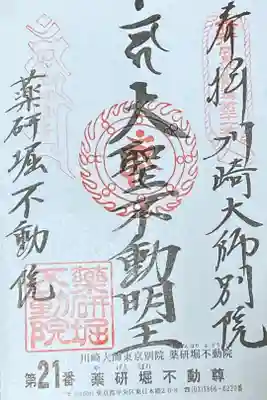 奉拝 川崎大師別院
大聖不動明王
薬研堀不動院
薬研堀
不動院
川崎大師東京別院 薬研堀不動院
やげんぼり
第21番 薬研堀不動尊